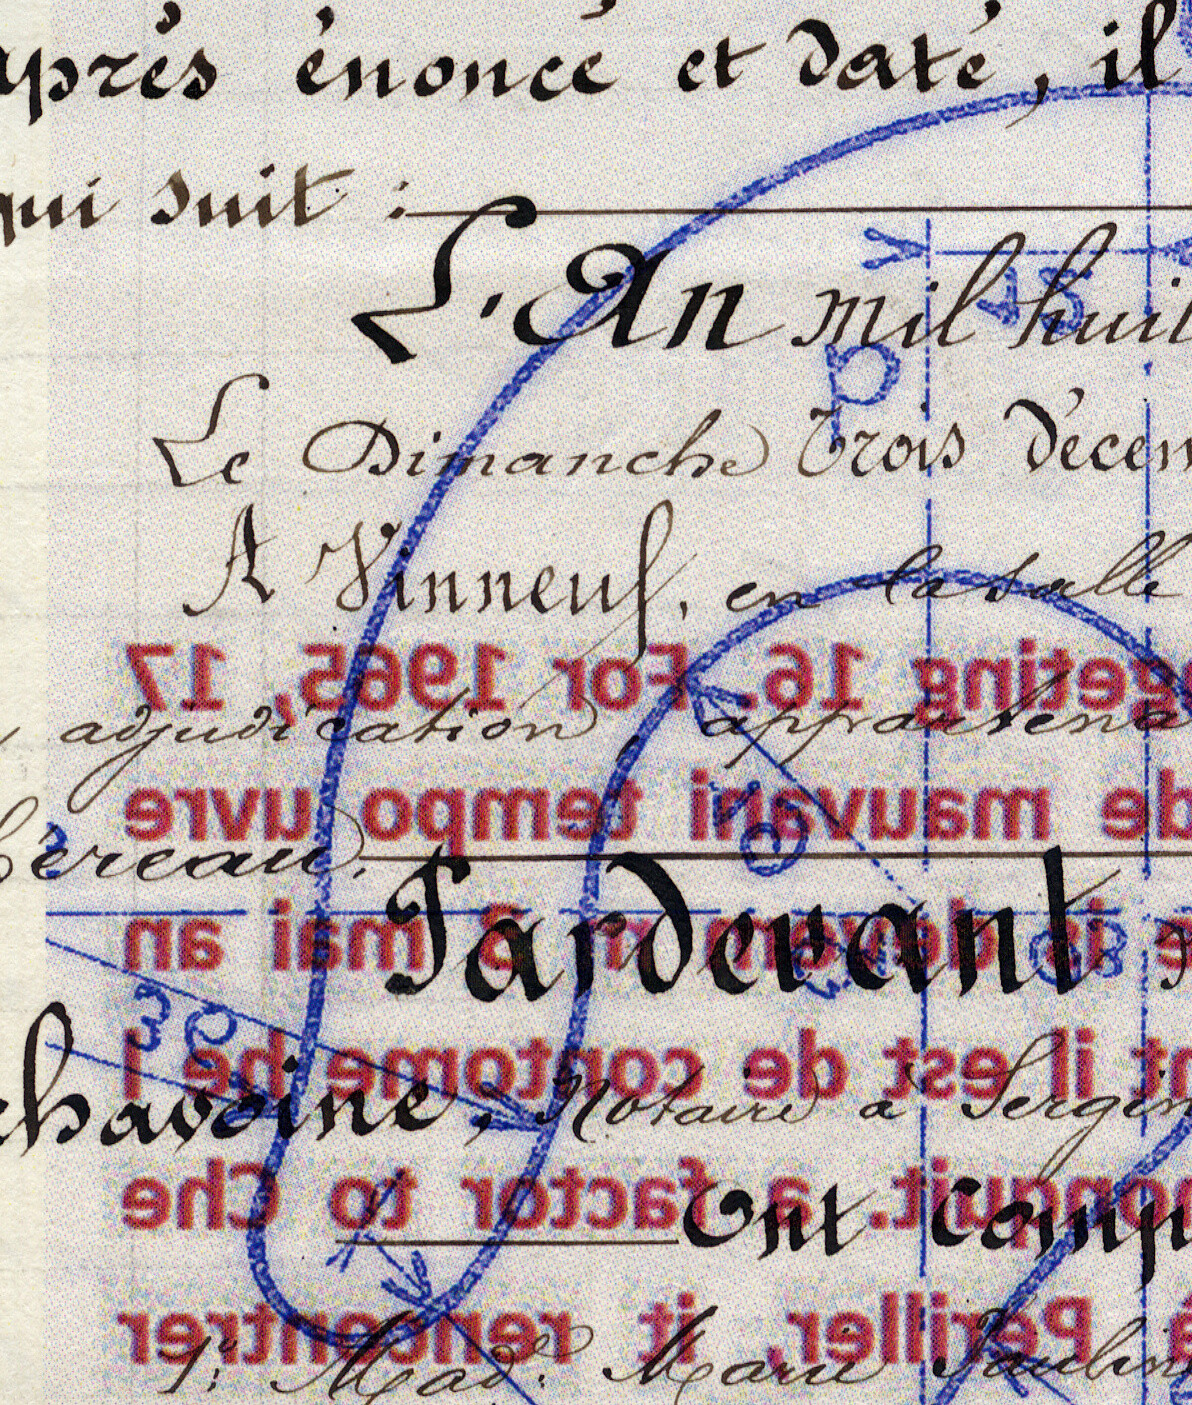 après énoncé et daté, il
qui suit :
L'An mil huit
15
Le Dimanche trois décem
A Vinneuf, en la salle
geting 16. For 1965, 17
adjudication, appartena
de mauvani tempo uvre
béreau.
Pardevant
mai an
80
39
nt il est de contome he I
chavoine, Notaire à Sergin
a factor to Che
Ont comp
Periller, it rencontrer
1º: Mad.e Marie Paulin